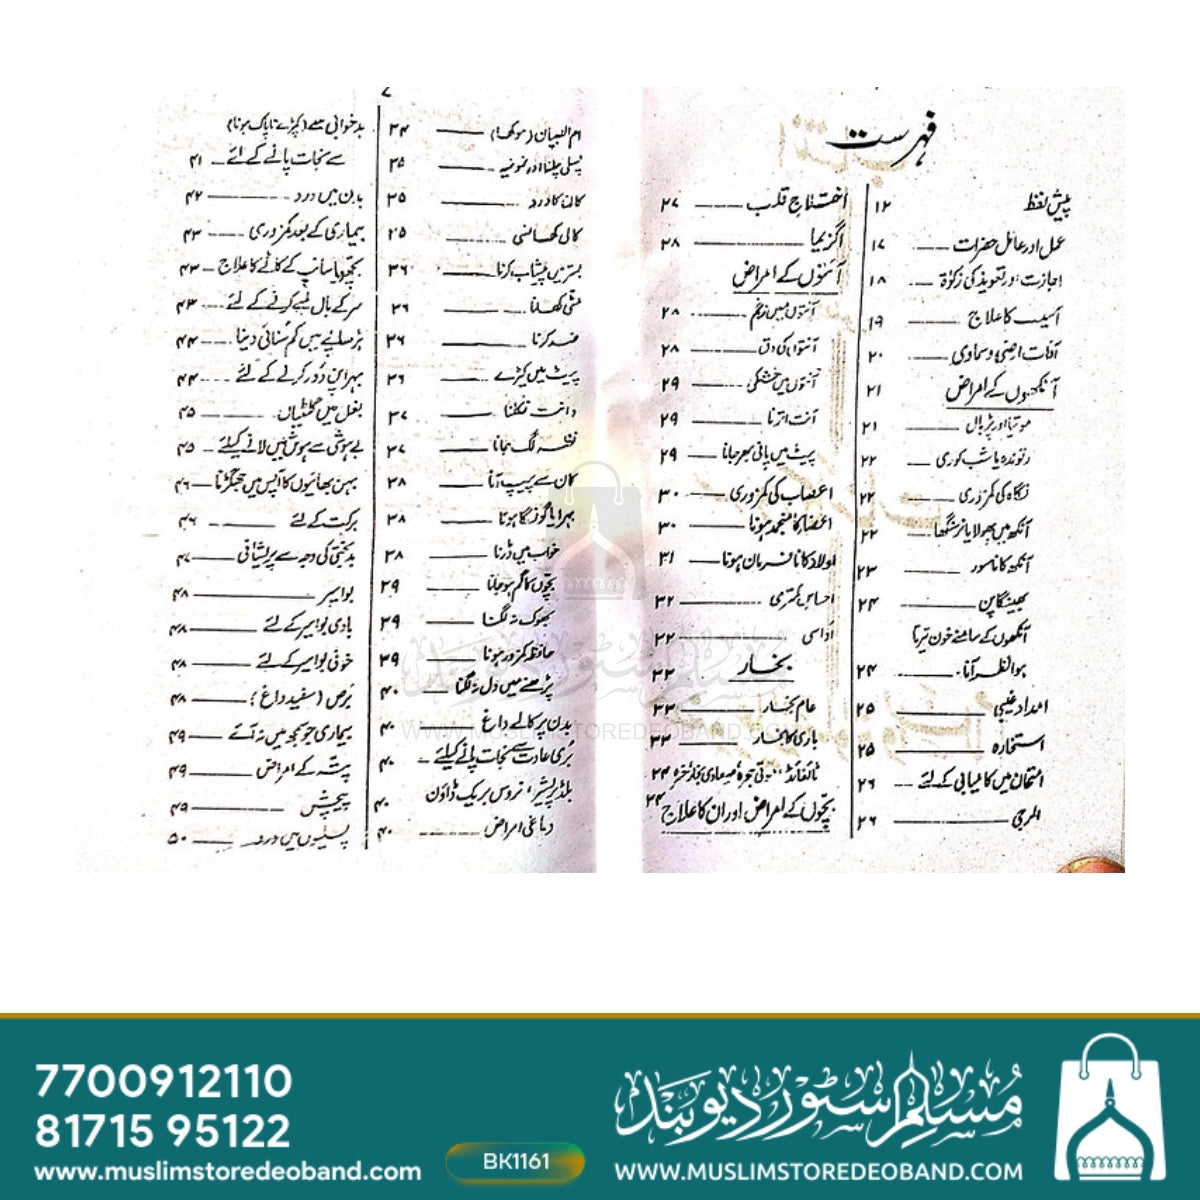 فہرست
پیش لفظ ۱۲
عمل اور عامل حضرات ۱۷
اجازت اور تعویذ کی زکوٰۃ ۱۸
آسیب کا علاج ۱۹
آفات ارضی و سماوی ۲۰
آنکھوں کے امراض ۲۱
موتیا اور پڑبال ۲۱
رتوندہ یا شب کوری ۲۲
نگاہ کی کمزوری ۲۲
آنکھ میں پھولا یا نرشگھا ۲۲
آنکھ کا ناسور ۲۳
بھینگا پن ۲۴
آنکھوں کے سامنے خون تیرتا
ہوا نظر آنا ۲۴
امداد غیبی ۲۵
استخارہ ۲۵
امتحان میں کامیابی کے لئے ۲۶
الرجی ۲۶
اختلاج قلب ۲۷
اگزیما ۲۸
آنتوں کے امراض
آنتوں میں زخم ۲۸
آنتوں کی دق ۲۸
آنتوں میں خشکی ۲۹
آنت اترنا ۲۹
پیٹ میں پانی بھر جانا ۲۹
اعصاب کی کمزوری ۳۰
اعضاء کا منجمد ہونا ۳۰
اولاد کا نافرمان ہونا ۳۱
احساس کمتری ۳۲
اداسی ۳۲
بخار ۳۳
عام بخار ۳۳
باری کا بخار ۳۳
ٹائفائڈ میعادی بخار ۳۴
بچوں کے امراض اور ان کا علاج ۳۴
۷
ام الصبیان (سوکھا) ۳۴
پسلی چلنا اور نمونیہ ۳۵
کان کا درد ۳۵
کالی کھانسی ۳۵
بستر میں پیشاب کرنا ۳۶
مٹی کھانا ۳۶
ضد کرنا ۳۶
پیٹ میں کیڑے ۳۶
دانت نکلنا ۳۷
نظر لگ جانا ۳۷
کان سے پیپ آنا ۳۸
بہرا یا گونگا ہونا ۳۸
خواب میں ڈرنا ۳۸
بچوں کا گم ہو جانا ۳۹
بھوک نہ لگنا ۳۹
حافظہ کمزور ہونا ۳۹
پڑھنے میں دل نہ لگنا ۴۰
بدن پر کالے داغ ۴۰
بری عادت سے نجات پانے کیلئے ۴۰
بلڈ پریشر، نروس بریک ڈاؤن ۴۰
دماغی امراض ۴۰
بدخوابی سے (کپڑے ناپاک ہونا)
سے نجات پانے کے لئے ۴۱
بدن میں درد ۴۲
بیماری کے بعد کمزوری ۴۳
بچھو یا سانپ کے کاٹے کا علاج ۴۳
سر کے بال لمبے کرنے کے لئے ۴۳
بڑھاپے میں کم سنائی دینا ۴۴
بہرا پن دور کرنے کے لئے ۴۴
بغل میں گلٹیاں ۴۵
بے ہوشی سے ہوش میں لانے کیلئے ۴۵
بہن بھائیوں کا آپس میں جھگڑنا ۴۶
برکت کے لئے ۴۶
بدبختی کی وجہ سے پریشانی ۴۷
بواسیر ۴۸
بادی بواسیر کے لئے ۴۸
خونی بواسیر کے لئے ۴۸
برص (سفید داغ) ۴۸
بیماری جو سمجھ میں نہ آئے ۴۹
پتہ کے امراض ۴۹
پیچش ۴۹
پسلیوں میں درد ۵۰
WWW.MUSLIMSTOREDEOBAND.COM
7700912110
81715 95122
www.muslimstoredeoband.com
BK1161
مسلم سٹور دیوبند
WWW.MUSLIMSTOREDEOBAND.COM